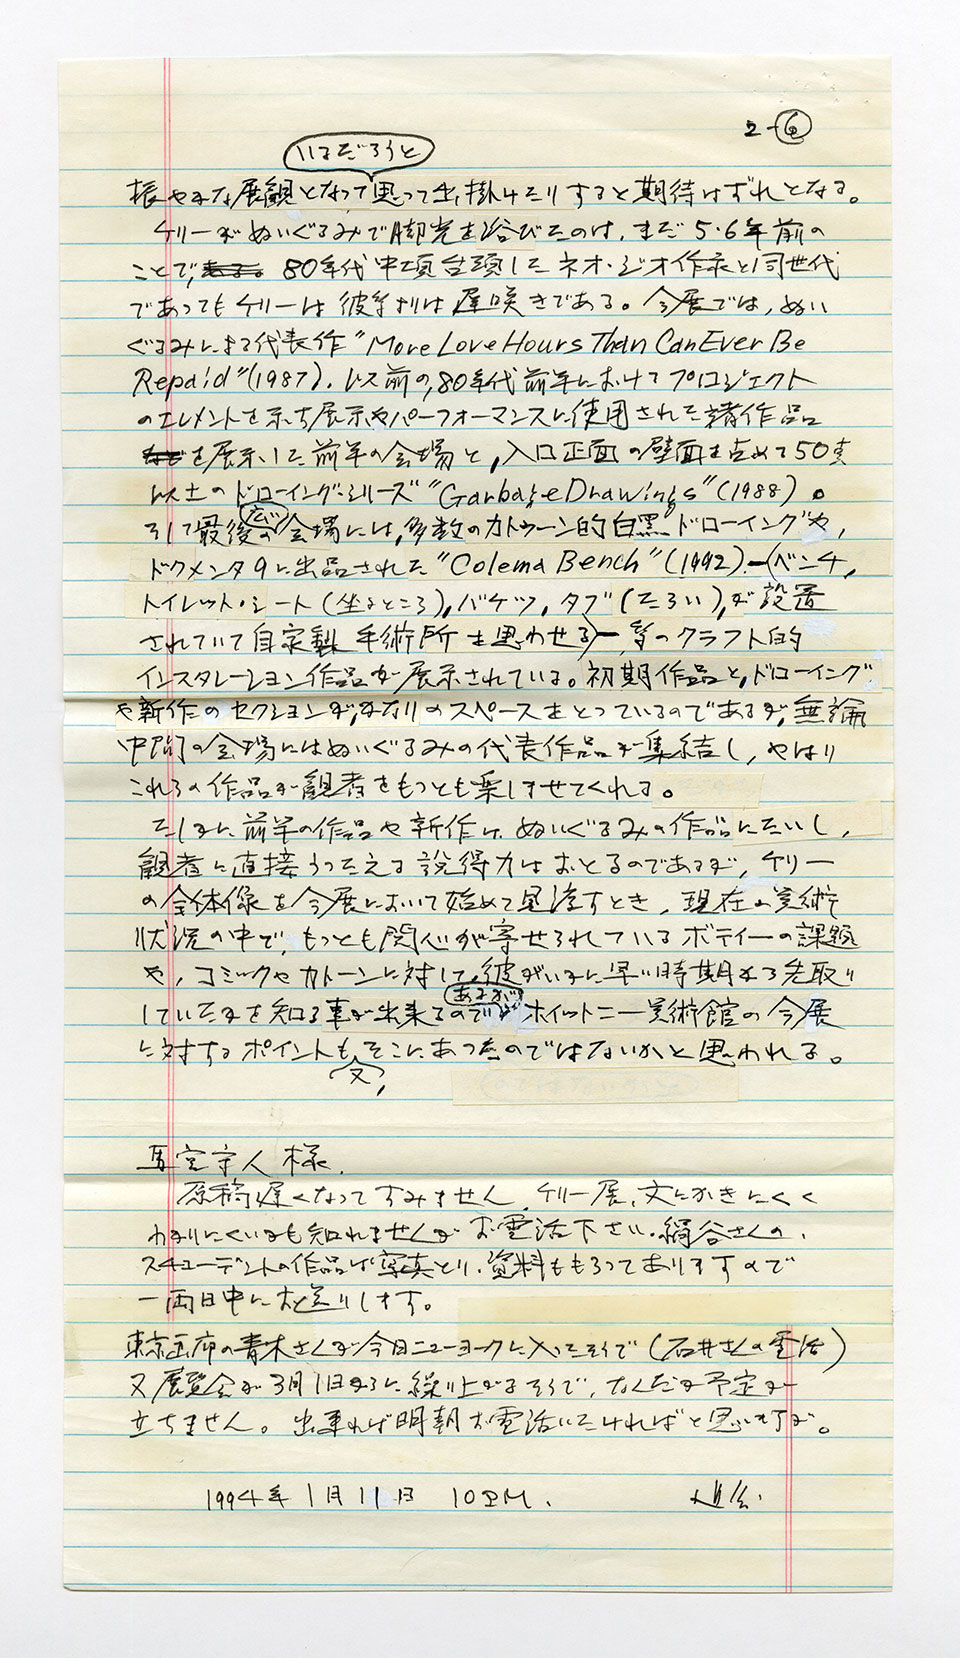 2-⑥
いるだろうと
振やかな展観となって思って出掛けたりすると期待はずれとなる。
ケリーがぬいぐるみで脚光を浴びたのは、まだ5・6年前の
ことで、80年代中頃台頭したネオ・ジオ作家と同世代
であってもケリーは彼等よりは遅咲きである。今展では、ぬい
ぐるみによる代表作"More Love Hours Than Can Ever Be
Repaid"(1987)、以前の,80年代前半においてプロジェクト
のエレメントを示す展示やパーフォーマンスに使用された諸作品
を展示した前半の会場と,入口正面の壁面を占めて50点
以上のドローイング・シリーズ"Garbage Drawings"(1988)。
そして最後の広い会場には,多数のカトゥーン的白黒ドローイングや,
ドクメンタ9に出品された"Colema Bench"(1992)―(ベンチ,
トイレット・シート(坐るところ),バケツ,タブ(たらい),が設置
されていて自家製手術所を思わせる)―等のクラフト的
インスタレーション作品が展示されている。初期作品と,ドローイング
や新作のセクションが,かなりのスペースをとっているのであるが,無論
中間の会場にはぬいぐるみの代表作品が集結し,やはり
これらの作品が観者をもっとも楽しませてくれる。
たしかに前半の作品や新作は,ぬいぐるみの作品にたいし,
観者に直接うったえる説得力はおとるのであるが,ケリー
の全体像を今展において始めて見渡すとき,現在の美術
状況の中で,もっとも関心が寄せられているボディーの課題
や,コミックやカトーンに対して,彼がいかに早い時期から先取り
していたかを知る事が出来るのであるが ホイットニー美術館の今展
に対するポイントも又,そこにあったのではないかと思われる。
馬宮守人様,
原稿遅くなってすみません,ケリー展,文にかきにくく
わかりにくいかも知れませんが お電話下さい。絹谷さんの,
スチューデントの作品は写真とり,資料ももらってありますので
一両日中にお送りします。
東京画布の青木さんが今日ニューヨークに入ったそうで(石井さんの電話)
又展覧会が3月1日からに繰り上がるそうで,なんだか予定が
立ちません。出来れば明朝お電話いただければと思いますが。
1994年1月11日 10PM.